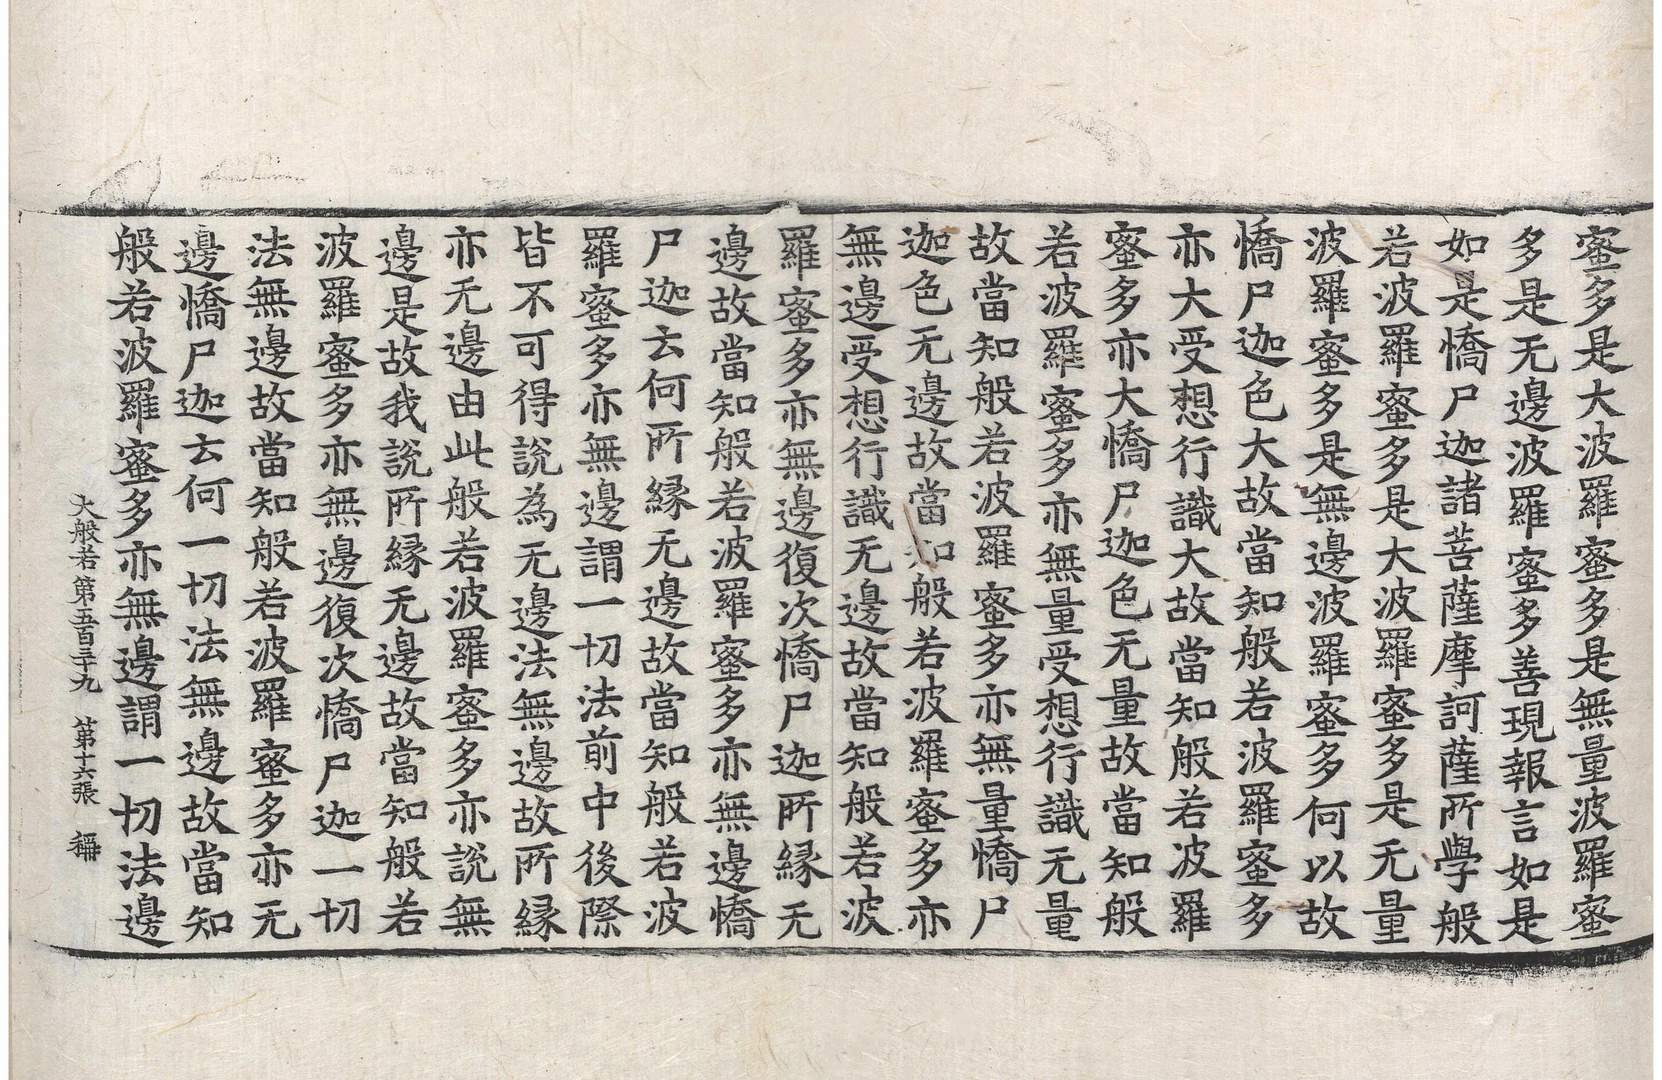 蜜多是大波羅蜜多是無量波羅蜜
多是无邊波羅蜜多善現報言如是
如是憍尸迦諸菩薩摩訶薩所學般
若波羅蜜多是大波羅蜜多是无量
波羅蜜多是無邊波羅蜜多何以故
憍尸迦色大故當知般若波羅蜜多
亦大受想行識大故當知般若波羅
蜜多亦大憍尸迦色无量故當知般
若波羅蜜多亦無量受想行識无量
故當知般若波羅蜜多亦無量憍尸
迦色无邊故當知般若波羅蜜多亦
無邊受想行識无邊故當知般若波
羅蜜多亦無邊復次憍尸迦所緣无
邊故當知般若波羅蜜多亦無邊憍
尸迦云何所緣无邊故當知般若波
羅蜜多亦無邊謂一切法前中後際
皆不可得說為无邊法無邊故所緣
亦无邊由此般若波羅蜜多亦說無
邊是故我說所緣无邊故當知般若
波羅蜜多亦無邊復次憍尸迦一切
法無邊故當知般若波羅蜜多亦无
邊憍尸迦云何一切法無邊故當知
般若波羅蜜多亦無邊謂一切法邊
大般若第五百三十九 第十六張 稱